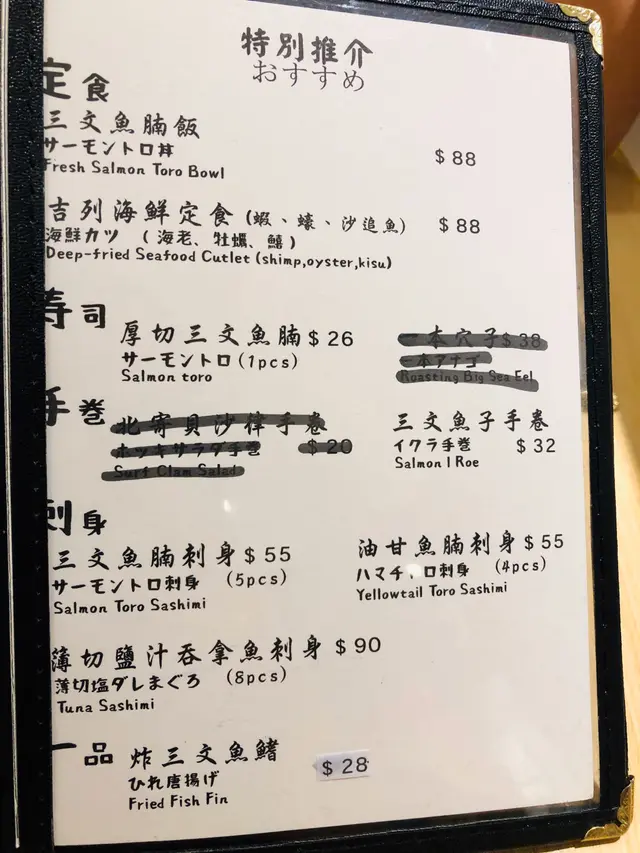 特別推介
おすすめ
定食
三文魚腩飯
サーモントロ丼
Fresh Salmon Toro Bowl
$ 88
吉列海鮮定食 (蝦、蠔、沙追魚)
$ 88
海鮮カツ ( 海老、牡蠣、鱚 )
Deep-fried Seafood Cutlet (shimp,oyster,kisu)
寿司
厚切三文魚腩 $ 26
サーモントロ (1pcs)
Salmon toro
一本穴子 $ 38
一本アナゴ
Roasting Big Sea Eel
手巻
北寄貝沙律手卷
ホッキサラダ手巻 $ 20
Surf Clam Salad
三文魚子手卷
イクラ手巻 $ 32
Salmon I Roe
刺身
三文魚腩刺身 $ 55
サーモントロ刺身 (5pcs)
Salmon Toro Sashimi
油甘魚腩刺身 $ 55
ハマチ、ロ刺身 (4pcs)
Yellowtail Toro Sashimi
薄切鹽汁吞拿魚刺身 $ 90
薄切塩ダレまぐろ (8pcs)
Tuna Sashimi
一品
炸三文魚鰭
$ 28
ひれ唐揚げ
Fried Fish Fin